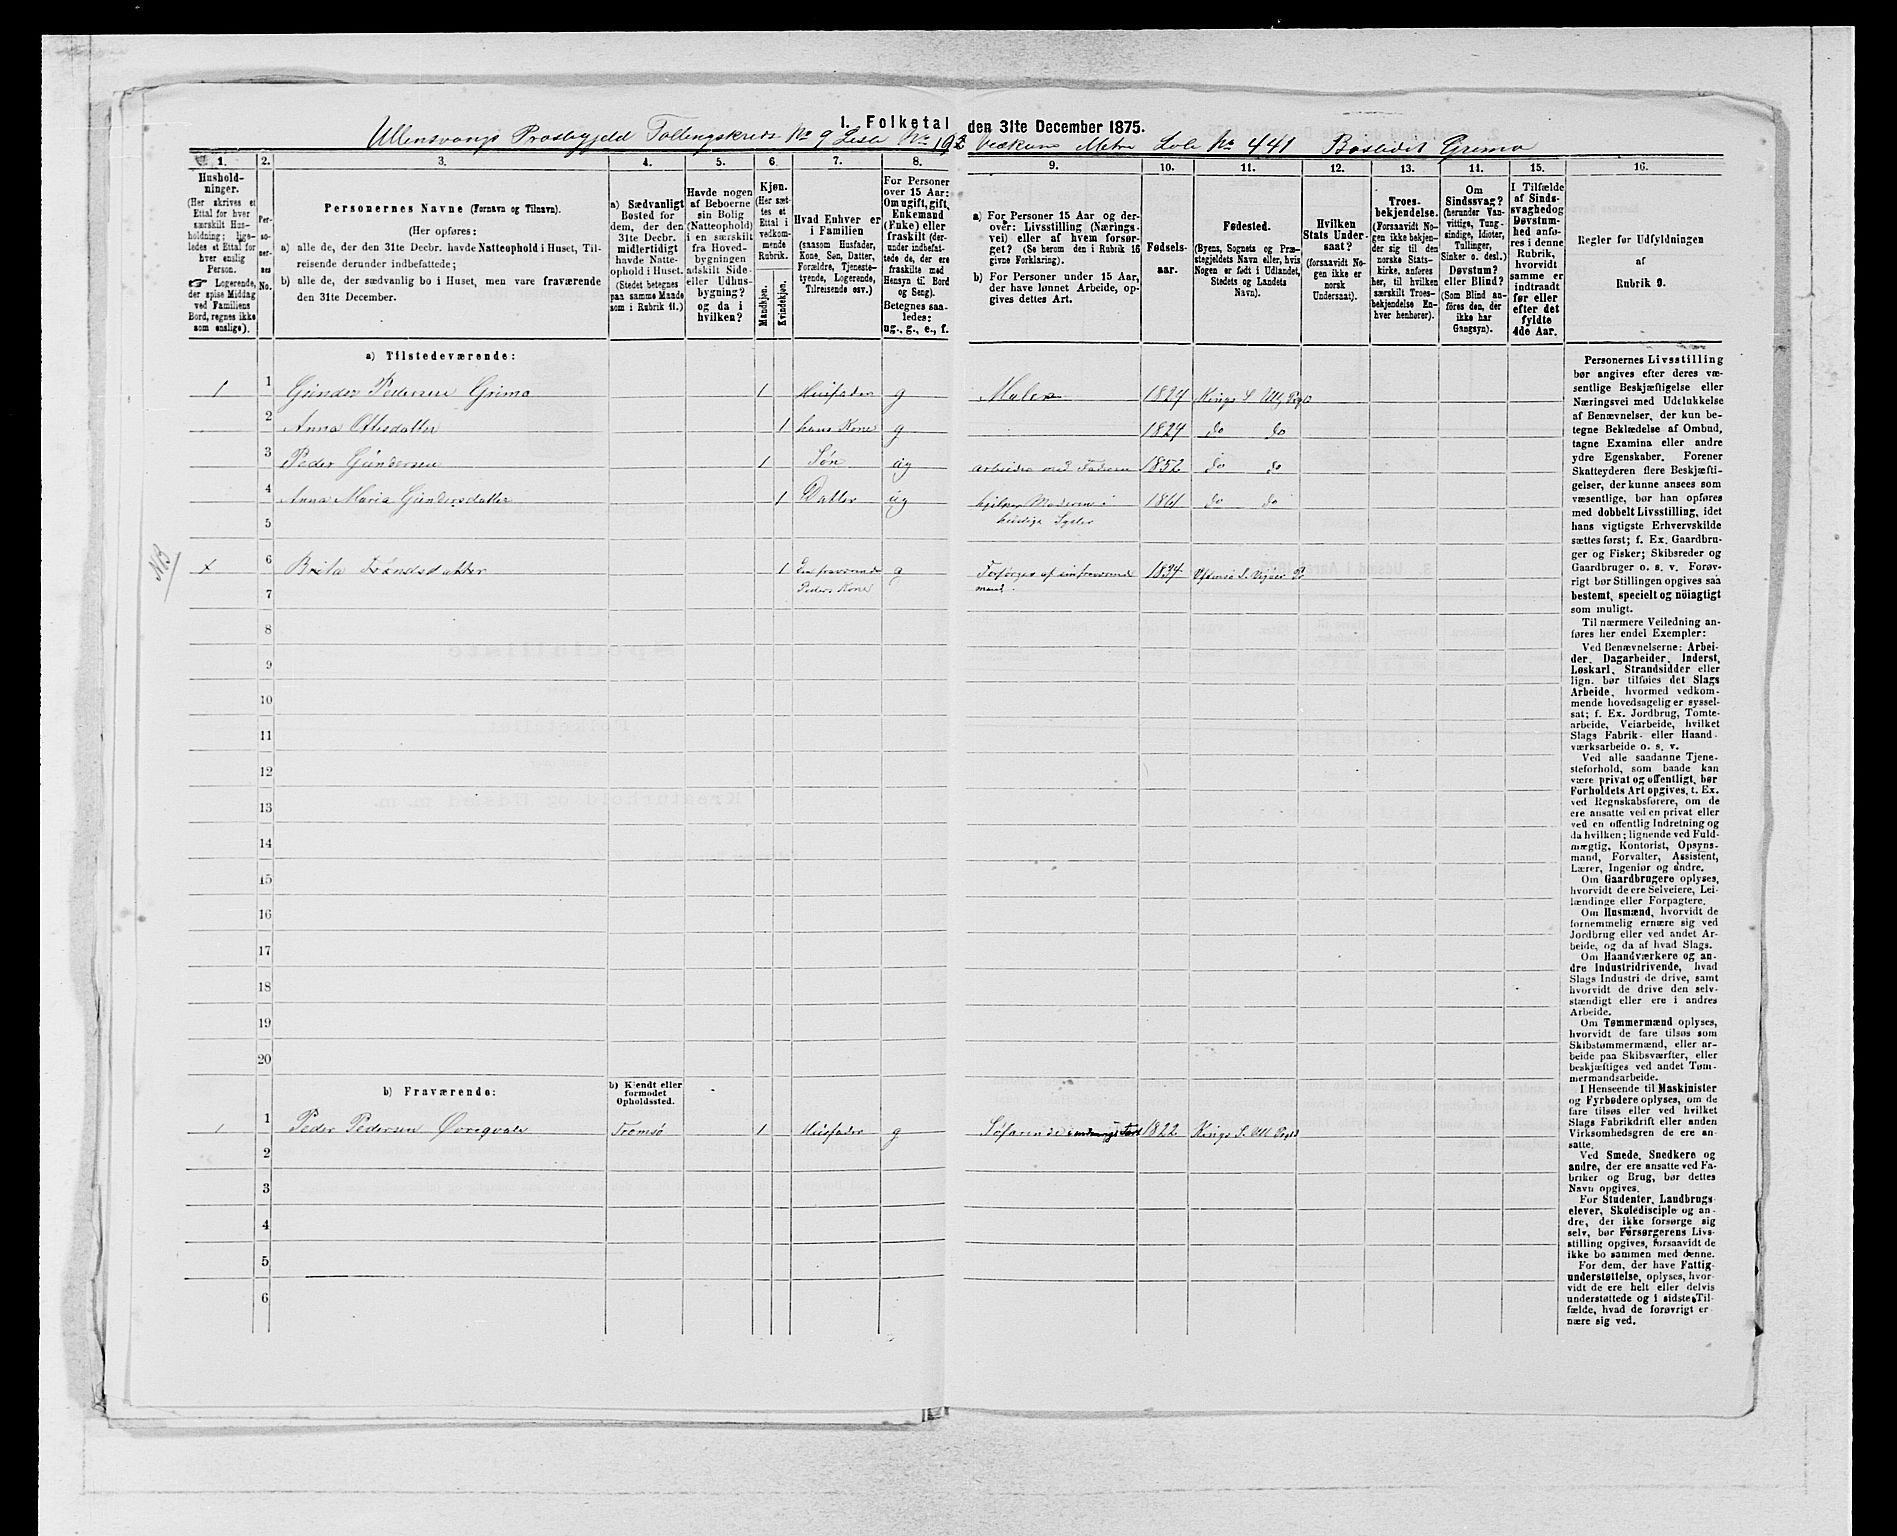 I. Folketal den 31te December 1875.
Ullensvangs Præstegjeld Tællingskreds No 9 Liste No 192 Løbe No 441 Bostedet Grimo
1. 2. 3. 4. 5. 6. 7. 8. 9. 10. 11. 12. 13. 14. 15. 16.
Hushold-
ninger.
(Her skrives et
Ettal for hver
særskilt Hus-
holdning; lige-
ledes et Ettal for
hver enslig
Person.
☞ Logerende,
der spise Middag
ved Familiens
Bord, regnes ikke
som enslige).
Per-
so-
ner-
nes
No.
Personernes Navne (Fornavn og Tilnavn).
(Her opføres:
a) alle de, der den 31te Decbr. havde Natteophold i Huset, Til-
reisende derunder indbefattede;
b) alle de, der sædvanlig bo i Huset, men vare fraværende
den 31te December.
a) Sædvanligt
Bosted for
dem, der den
31te Decbr.
midlertidigt
havde Natte-
ophold i Huset.
(Stedet betegnes
paa samme Maade
som i Rubrik 11.)
Havde nogen
af Beboerne
sin Bolig
(Natteophold)
i en særskilt
fra Hoved-
bygningen
adskilt Side-
eller Udhus-
bygning?
og da i
hvilken?
Kjøn.
(Her sæt-
tes et
Ettal i
vedkom-
mende
Rubrik.
Mandkjøn.
Kvindekjøn.
Hvad Enhver er
i Familien
(saasom Husfader,
Kone, Søn, Datter,
Forældre, Tjeneste-
tyende, Logerende,
Tilreisende osv.)
For Personer
over 15 Aar:
Om ugift, gift,
Enkemand
(Enke) eller
fraskilt (der-
under indbefat-
tede de, der ere
fraskilte med
Hensyn til Bord
og Seng).
Betegnes saa-
ledes:
ug., g., e., f.
a) For Personer 15 Aar og der-
over: Livsstilling (Nærings-
vei) eller af hvem forsør-
get? (Se herom den i Rubrik 16
givne Forklaring).
b) For Personer under 15 Aar,
der have lønnet Arbeide, op-
gives dettes Art.
Fødsels-
aar.
Fødested.
(Byens, Sognets og Præ-
stegjeldets Navn eller, hvis
Nogen er født i Udlandet,
Stedets og Landets
Navn).
Hvilken
Stats Under-
saat?
(forsaavidt No-
gen ikke er
norsk
Undersaat).
Troes-
bekjendelse.
(Forsaavidt No-
gen ikke bekjen-
der sig til den
norske Stats-
kirke, anføres
her, til hvilken
særskilt Troes-
bekjendelse En-
hver henhører).
Om
Sindssvag?
(herunder Van-
vittige, Tung-
sindige, Idioter,
Tullinger,
Sinker o. desl.)
Døvstum?
eller Blind?
(Som Blind an-
føres den, der
ikke har
Gangsyn).
I Tilfælde
af Sinds-
svaghed og
Døvstum-
hed anfø-
res i denne
Rubrik,
hvorvidt
samme er
indtraadt
før eller
efter det
fyldte
4de Aar.
Regler for Udfyldningen
af
Rubrik 9.
a) Tilstedeværende:
1 1 Gunder Pedersen Grimo 1 Husfader g Maler 1827 Kings S. Ull. Prgd
2 Anna Ottisdatter 1 hans Kone g 1824 do do
3 Peder Gundersen 1 Søn ug arbeider med Faderen 1852 do do
4 Anna Maria Gundersdatter 1 Datter ug hjelper Moderen i 1861 do do
5 huslige Sysler
NB
x 6 Brita Trondsdatter 1 Den fraværende g Forsørges af sin fraværende 1834
7 Peders Kone mand.
8
9
10
11
12
13
14
15
16
17
18
19
20
b) Fraværende:
b) Kjendt eller
formodet
Opholdssted.
1 1 Peder Pedersen Tromsø 1 Husfader g Søfarende 1822 Kings S. Ull Prgd
2
3
4
5
6
Personernes Livsstilling
bør angives efter deres væ-
sentlige Beskjæftigelse eller
Næringsvei med Udelukkelse
af Benævnelser, der kun be-
tegne Beklædelse af Ombud,
tagne Examina eller andre
ydre Egenskaber. Forener
Skatteyderen flere Beskjæfti-
gelser, der kunne ansees som
væsentlige, bør han opføres
med dobbelt Livsstilling, idet
hans vigtigste Erhvervskilde
sættes først; f. Ex. Gaardbru-
ger og Fisker; Skibsreder og
Gaardbruger o. s. v. Forøv-
rigt bør Stillingen opgives saa
bestemt, specielt og nöiagtigt
som muligt.
Til nærmere Veiledning an-
føres her endel Exempler:
Ved Benævnelserne: Arbei-
der, Dagarbeider, Inderst,
Løskarl, Strandsidder eller
lign. bør tilføies det Slags
Arbeide, hvormed vedkom-
mende hovedsagelig er syssel-
sat; f. Ex. Jordbrug, Tomte-
arbeide, Veiarbeide, hvilket
Slags Fabrik- eller Haand-
værksarbeide o. s. v.
Ved alle saadanne Tjene-
steforhold, som baade kan
være privat og offentligt, bør
Forholdets Art opgives, t. Ex.
ved Regnskabsførere, om de
ere ansatte ved en privat eller
ved en offentlig Indretning og
da hvilken; lignende ved Fuld-
mægtig, Kontorist, Opsyns-
mand, Forvalter, Assistent,
Lærer, Ingeniør og andre.
Om Gaardbrugere oplyses,
hvorvidt de ere Selveiere, Lei-
lændinge eller Forpagtere.
Om Husmænd, hvorvidt de
fornemmelig ernære sig ved
Jordbrug eller ved andet Ar-
beide, og da af hvad Slags.
Om Haandværkere og an-
dre Industridrivende, hvad
Slags Industri de drive, samt
hvorvidt de drive den selv-
stændigt eller ere i andres
Arbeide.
Om Tømmermænd oplyses,
hvorvidt de fare tilsøs som
Skibstømmermænd, eller ar-
beide paa Skibsværfter, eller
beskjæftiges ved andet Tøm-
mermandsarbeide.
I Henseende til Maskinister
og Fyrbødere oplyses, om de
fare tilsøs eller ved hvilket
Slags Fabrikdrift eller anden
Virksomhedsgren de ere an-
satte.
Ved Smede, Snedkere og
andre, der ere ansatte ved Fa-
briker og Brug, bør dettes
Navn opgives.
For Studenter, Landbrugs-
elever, Skoledisciple og an-
dre, der ikke forsørge sig
selv, bør Forsørgerens Livs-
stilling opgives, forsaavidt de
ikke bo sammen med denne.
For dem, der have Fattig-
understøttelse, oplyses, hvor-
vidt de ere helt eller delvis
understøttede og i sidste Til-
fælde, hvad de forøvrigt er-
nære sig ved.